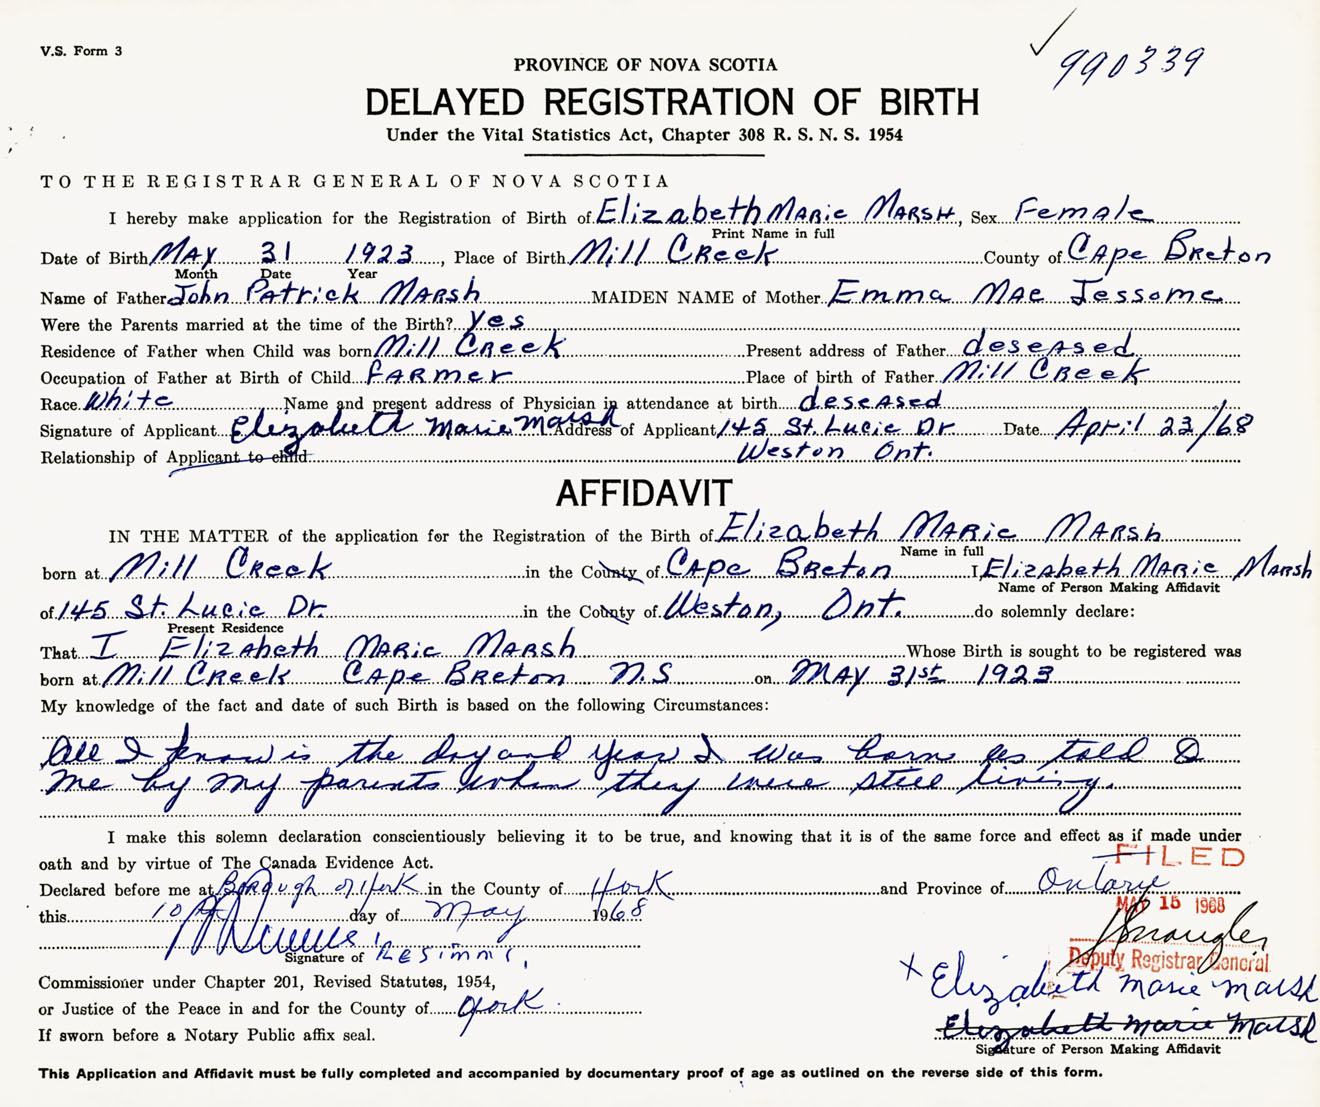 V.S. Form 3
990339
PROVINCE OF NOVA SCOTIA
DELAYED REGISTRATION OF BIRTH
Under the Vital Statistics Act, Chapter 308 R. S. N. S. 1954
TO THE REGISTRAR GENERAL OF NOVA SCOTIA
I hereby make application for the Registration of Birth of Elizabeth Marie Marsh, Sex Female
Print Name in full
Date of Birth May 31 1923, Place of Birth Mill Creek County of Cape Breton
Month Date Year
Name of Father John Patrick Marsh MAIDEN NAME of Mother Emma Mae Jessome
Were the Parents married at the time of the Birth? Yes
Residence of Father when Child was born Mill Creek Present address of Father deseased
Occupation of Father at Birth of Child Farmer Place of birth of Father Mill Creek
Race White Name and present address of Physician in attendance at birth deseased
Signature of Applicant Elizabeth Marie Marsh Address of Applicant 145 St. Lucie Dr Date April 23/68
Relationship of Applicant to child Weston Ont.
AFFIDAVIT
IN THE MATTER of the application for the Registration of the Birth of Elizabeth Marie Marsh
Name in full
born at Mill Creek in the County of Cape Breton I Elizabeth Marie Marsh
Name of Person Making Affidavit
of 145 St. Lucie Dr. in the County of Weston, Ont. do solemnly declare:
Present Residence
That I Elizabeth Marie Marsh Whose Birth is sought to be registered was
born at Mill Creek Cape Breton N.S on May 31st 1923
My knowledge of the fact and date of such Birth is based on the following Circumstances:
All I know is the day and year I was born as told
me by my parents when they were still living.
I make this solemn declaration conscientiously believing it to be true, and knowing that it is of the same force and effect as if made under
oath and by virtue of The Canada Evidence Act.
FILED
Declared before me at Borough of York in the County of York and Province of Ontario
this 10th day of May 1968
MAY 15 1968
Signature of
Deputy Registrar General
Commissioner under Chapter 201, Revised Statutes, 1954,
x Elizabeth Marie Marsh
or Justice of the Peace in and for the County of York
Elizabeth Marie Marsh
If sworn before a Notary Public affix seal.
Signature of Person Making Affidavit
This Application and Affidavit must be fully completed and accompanied by documentary proof of age as outlined on the reverse side of this form.